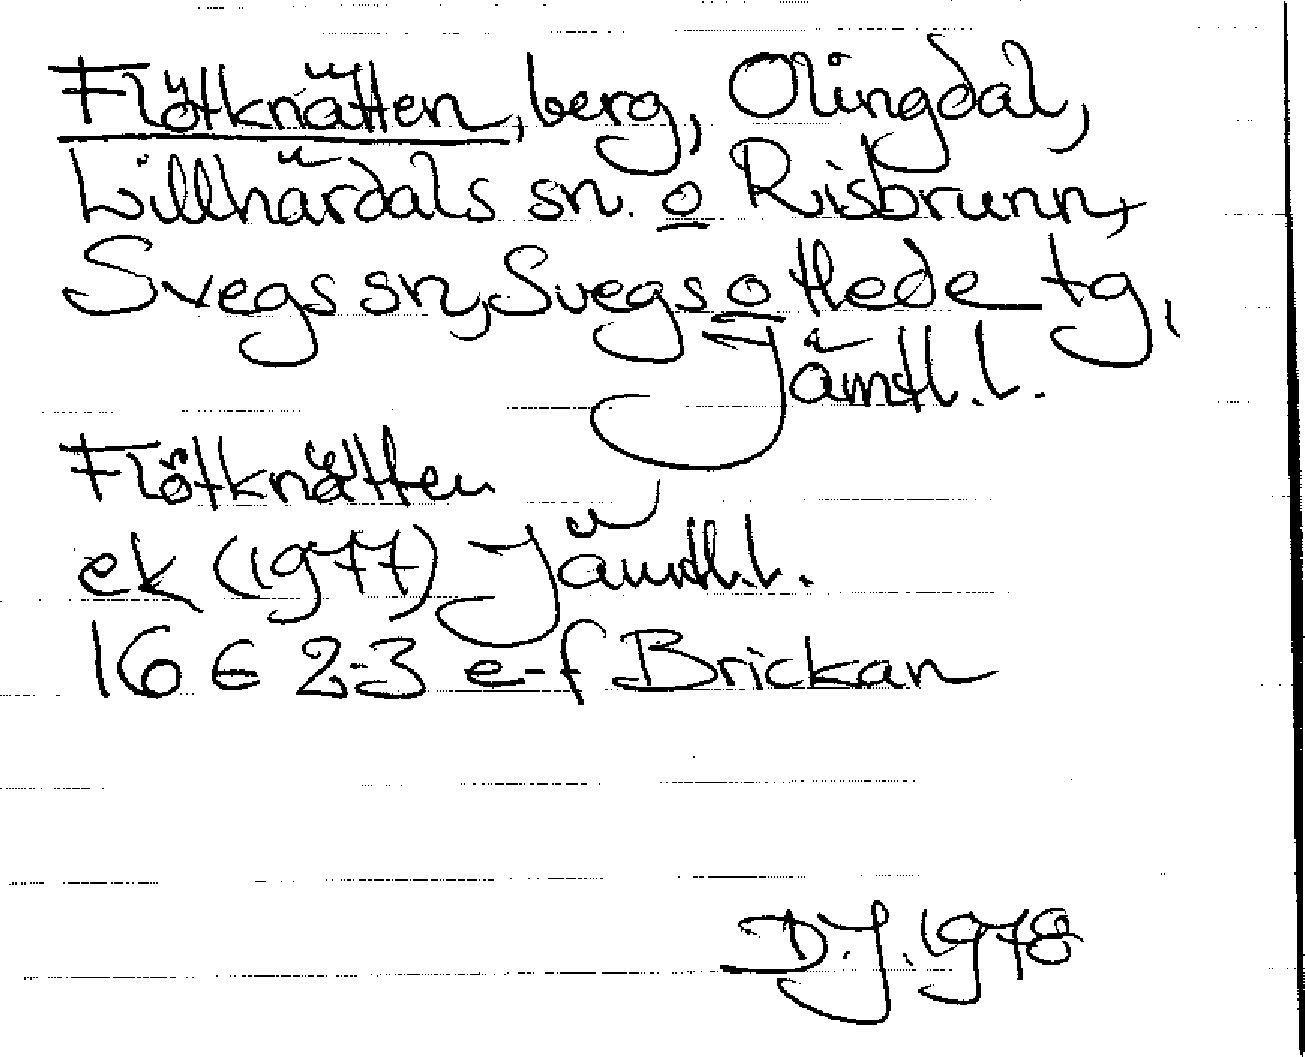 Flötknätten, berg, Olingdal,
Lillhärdals sn. o Risbrunn,
Svegs sn, Svegs o Hede tg,
Jämtl.l.
Flötknätten
ek (1977) Jämtl.l.
16 E 2-3 e-f Brickan
D.J. 1978